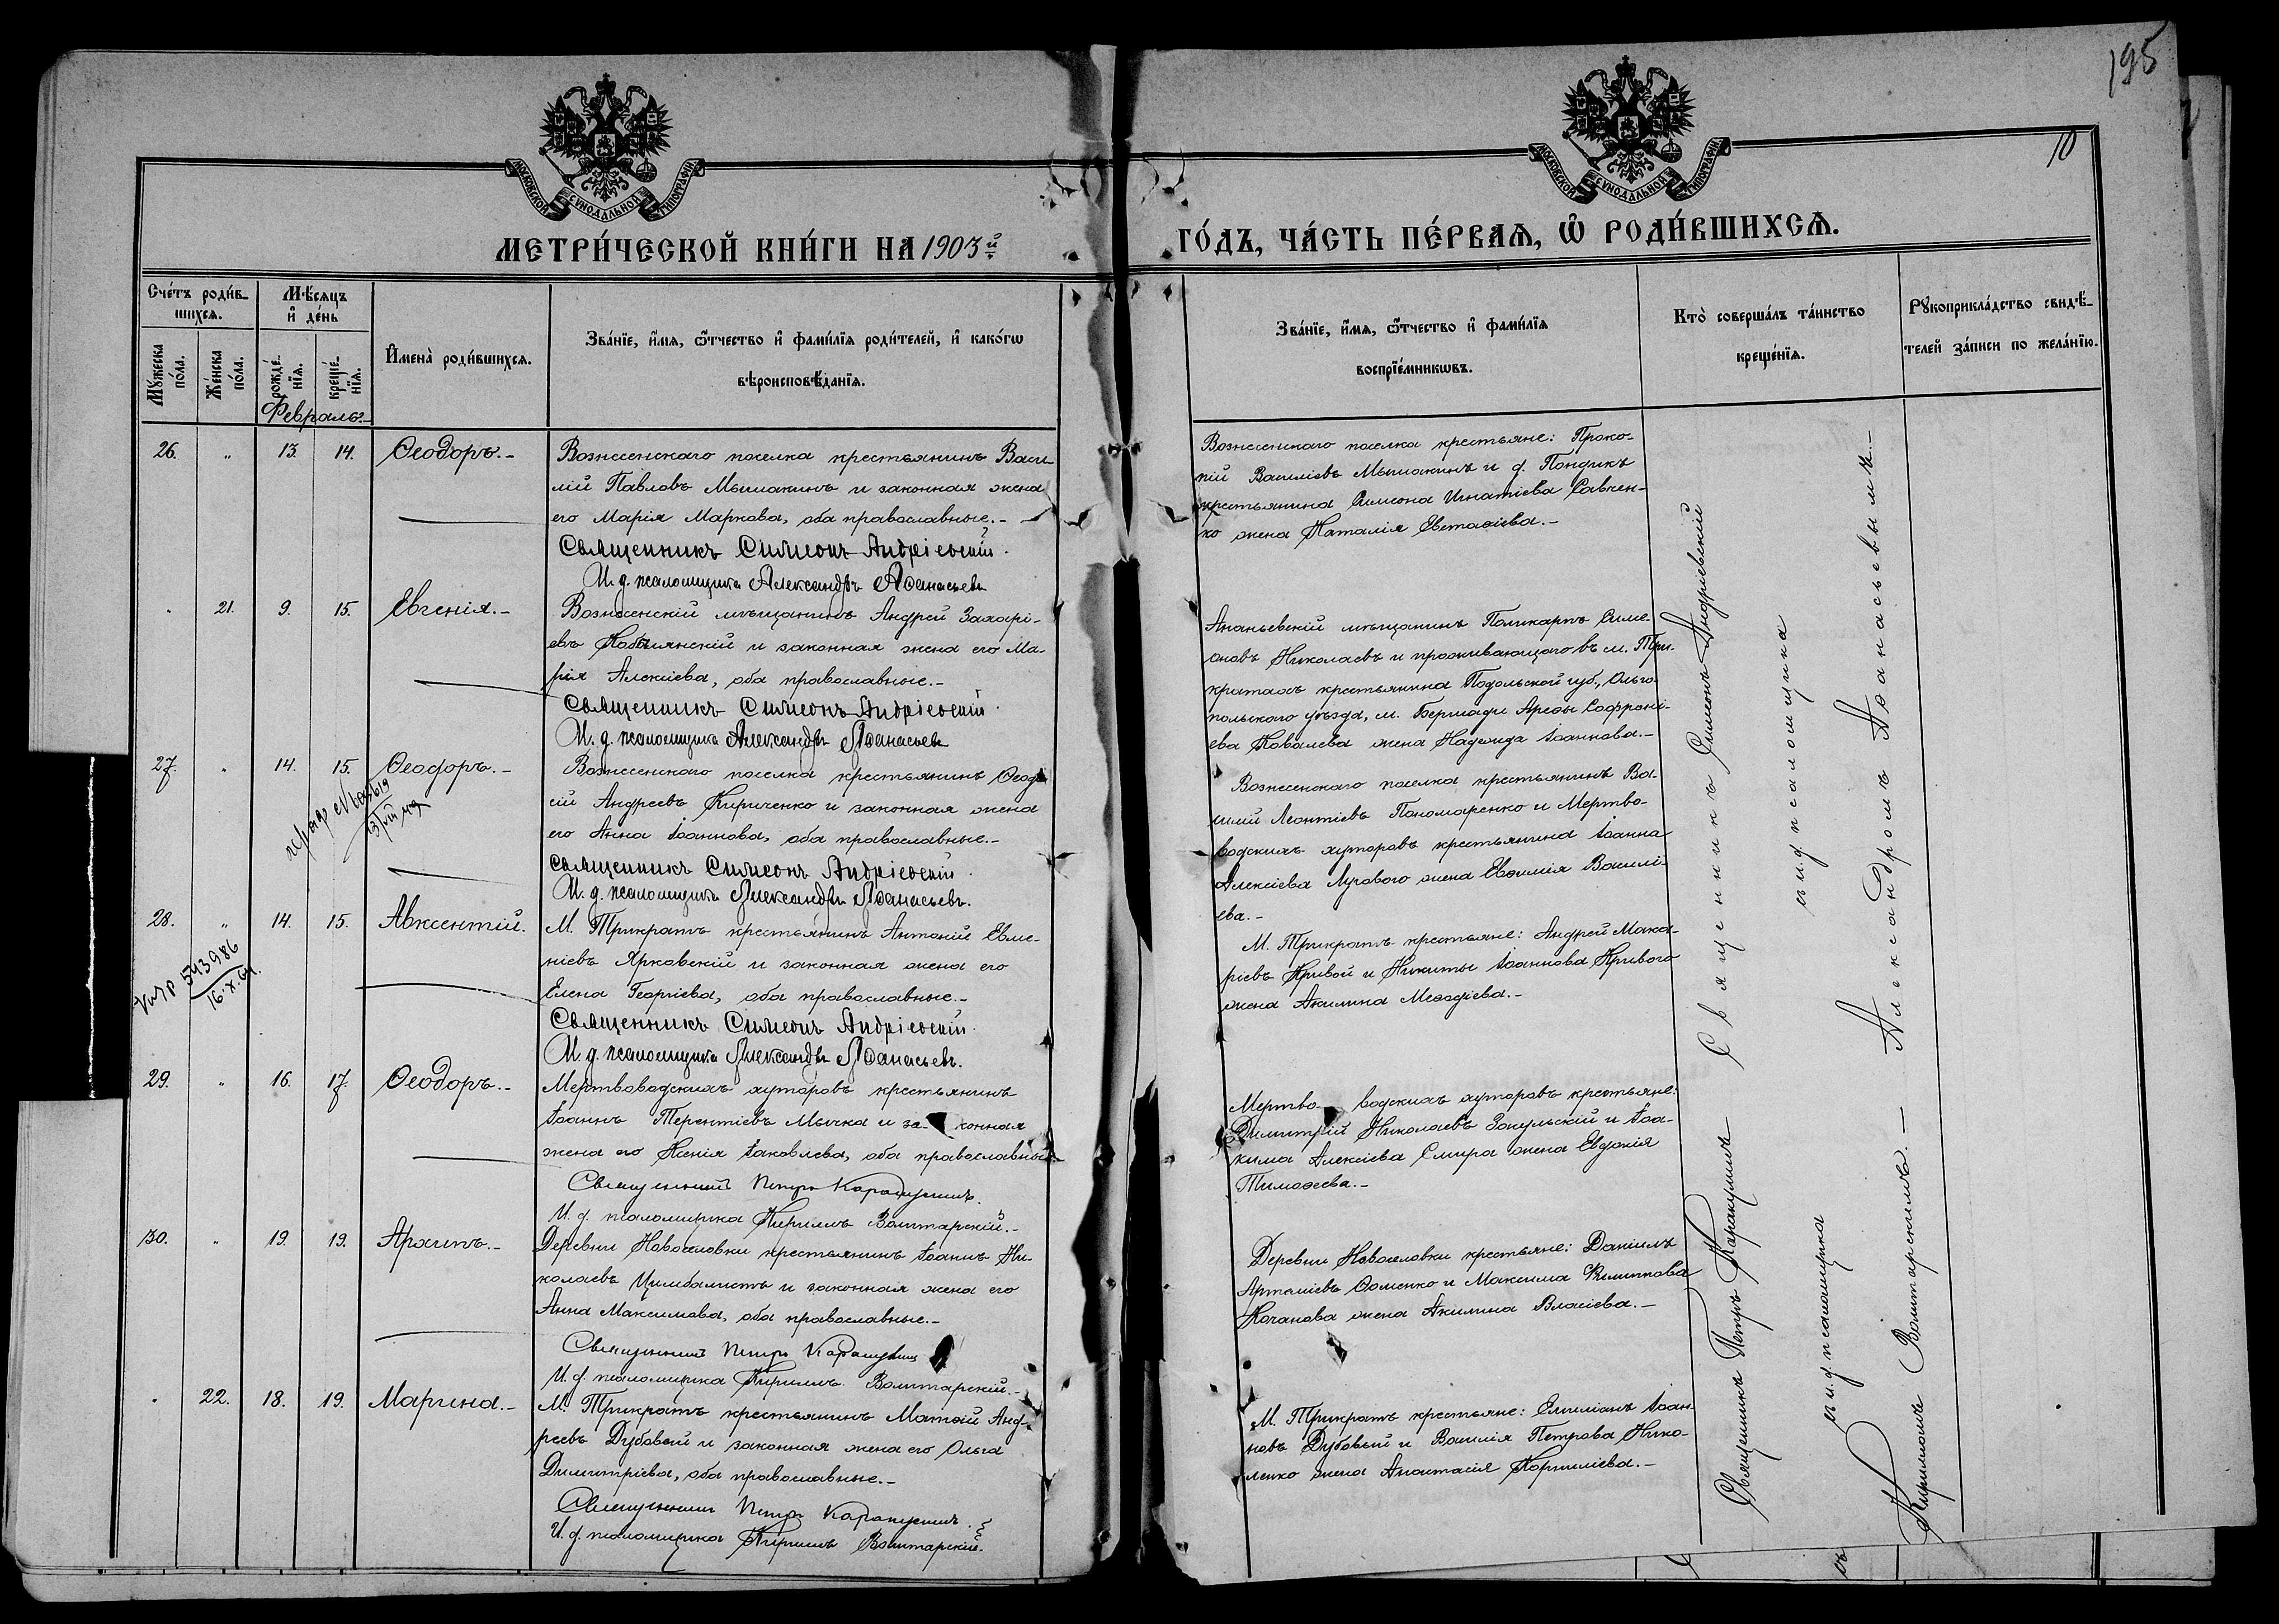 195
10
МОСКОВСКОЙ СѴНОДАЛЬНОЙ ТИПОГРАФІИ
МОСКОВСКОЙ СѴНОДАЛЬНОЙ ТИПОГРАФІИ
МЕТРИ́ЧЕСКОЙ КНИ́ГИ НА 1903й
ГО́ДЪ, ЧА́СТЬ ПЕ́РВАѦ, Ѽ РОДИ́ВШИХСѦ.
Сче́тъ роди́в-
шихсѧ.
Мꙋ́жеска по́ла.
Же́нска по́ла.
Мѣ́сяцъ
и҆ де́нь
рожде́-
нїѧ.
креще́-
нїѧ.
И҆мена̀ роди́вшихсѧ.
Зва́нїе, и҆́мѧ, ѻ҆́тчество и҆ фами́лїѧ роди́телей, и҆ како́гѡ
вѣроисповѣ́данїѧ.
Зва́нїе, и҆́мѧ, ѻ҆́тчество и҆ фами́лїѧ
воспрїе́мникѡвъ.
Кто̀ соверша́лъ та́инство
креще́нїѧ.
Рꙋкоприкла́дство свидѣ́-
телей за́писи по жела́нїю.
Февраль.-
26. " 13. 14. Ѳеодоръ.-
Вознесенскаго поселка крестьянинъ Васи-
лій Павловъ Мышакинъ и законная жена
его Марія Маркова, оба православные.-
Священникъ Симеонъ Андріевскій.
И. д. псаломщика Александръ Аѳанасьевъ
Вознесенскаго поселка крестьяне: Проко-
пій Васильевъ Мышакинъ и д.
крестьянина Симеона Игнатіева Савчен-
ко жена Наталія Евстафіева.-
" 21. 9. 15. Евгенія.-
Вознесенскій мѣщанинъ Андрей Захарі-
евъ Кобылянскій и законная жена его Ма-
рія Алексіева, оба православные.-
Священникъ Симеонъ Андріевскій.
И. д. псаломщика Александръ Аѳанасьевъ
Ананьевскій мѣщанинъ Поликарпъ Симе-
оновъ Николаевъ и проживающаго въ м. Три-
кратахъ крестьянина Подольской губ., Ольго-
польскаго уѣзда, м. Бершади Арефы Софроні-
ева Ковалева жена Надежда Іоаннова.-
27. " 14. 15. Ѳеодоръ.-
Вознесенскаго поселка крестьянинъ Ѳеодо-
сій Андреевъ Кириченко и законная жена
его Анна Іоаннова, оба православные.-
Священникъ Симеонъ Андріевскій.
И. д. псаломщика Александръ Аѳанасьевъ.
Вознесенскаго поселка крестьянинъ Ва-
силій Леонтіевъ Пономаренко и Мертво-
водскихъ хуторовъ крестьянина Іоанна
Алексіева Лугового жена Евфимія Василі-
ева.-
28. " 14. 15. Авксентій.
543986
16.X.61.
М. Трикратъ крестьянинъ Антоній Евме-
ніевъ Ярковскій и законная жена его
Елена Георгіева, оба православные.-
Священникъ Симеонъ Андріевскій.
И. д. псаломщика Александръ Аѳанасьевъ.
М. Трикратъ крестьяне: Андрей Мака-
ріевъ Кривой и Никиты Іоаннова Кривого
жена Акилина Меѳодіева.-
29. " 16. 17. Ѳеодоръ.-
Мертвоводскихъ хуторовъ крестьянинъ
Іоаннъ Терентіевъ Мычка и за-конная
жена его Ксенія Іаковлева, оба православные.-
Священникъ Петръ Каракушъ.
И. д. псаломщика Кириллъ Волитарскій.-
Мертво-водскихъ хуторовъ крестьяне:
Димитрій Николаевъ Закульскій и Іоа-
кима Алексіева Смира жена Евдокія
Тимоѳеева.-
30. " 19. 19. Архипъ.-
Деревни Новоселовки крестьянинъ Іоаннъ Ни-
колаевъ Цимбалистъ и законная жена его
Анна Максимова, оба православные.-
Священникъ Петръ
И. д. псаломщика Кириллъ Волитарскій.-
Деревни Новоселовки крестьяне: Даніилъ
Артеміевъ Ѳоменко и Максима Филиппова
Коганова жена Акилина Власіева.-
" 22. 18. 19. Марина.-
М. Трикратъ крестьянинъ Матѳій Анд-
реевъ Дубовой и законная жена его Ольга
Димитріева, оба православные.-
Священникъ Петръ
И. д. псаломщика Кириллъ Волитарскій.
М. Трикратъ крестьяне: Емиліанъ Іоан-
новъ Дубовый и Василія Петрова Нико-
ленко жена Анастасія Корниліева.-
Священникъ Симеонъ Андріевскій
съ и. д. псаломщика
Александромъ Аѳанасьевымъ.-
Священникъ Петръ
съ и. д. псаломщика
Кирилломъ Волитарскимъ.-